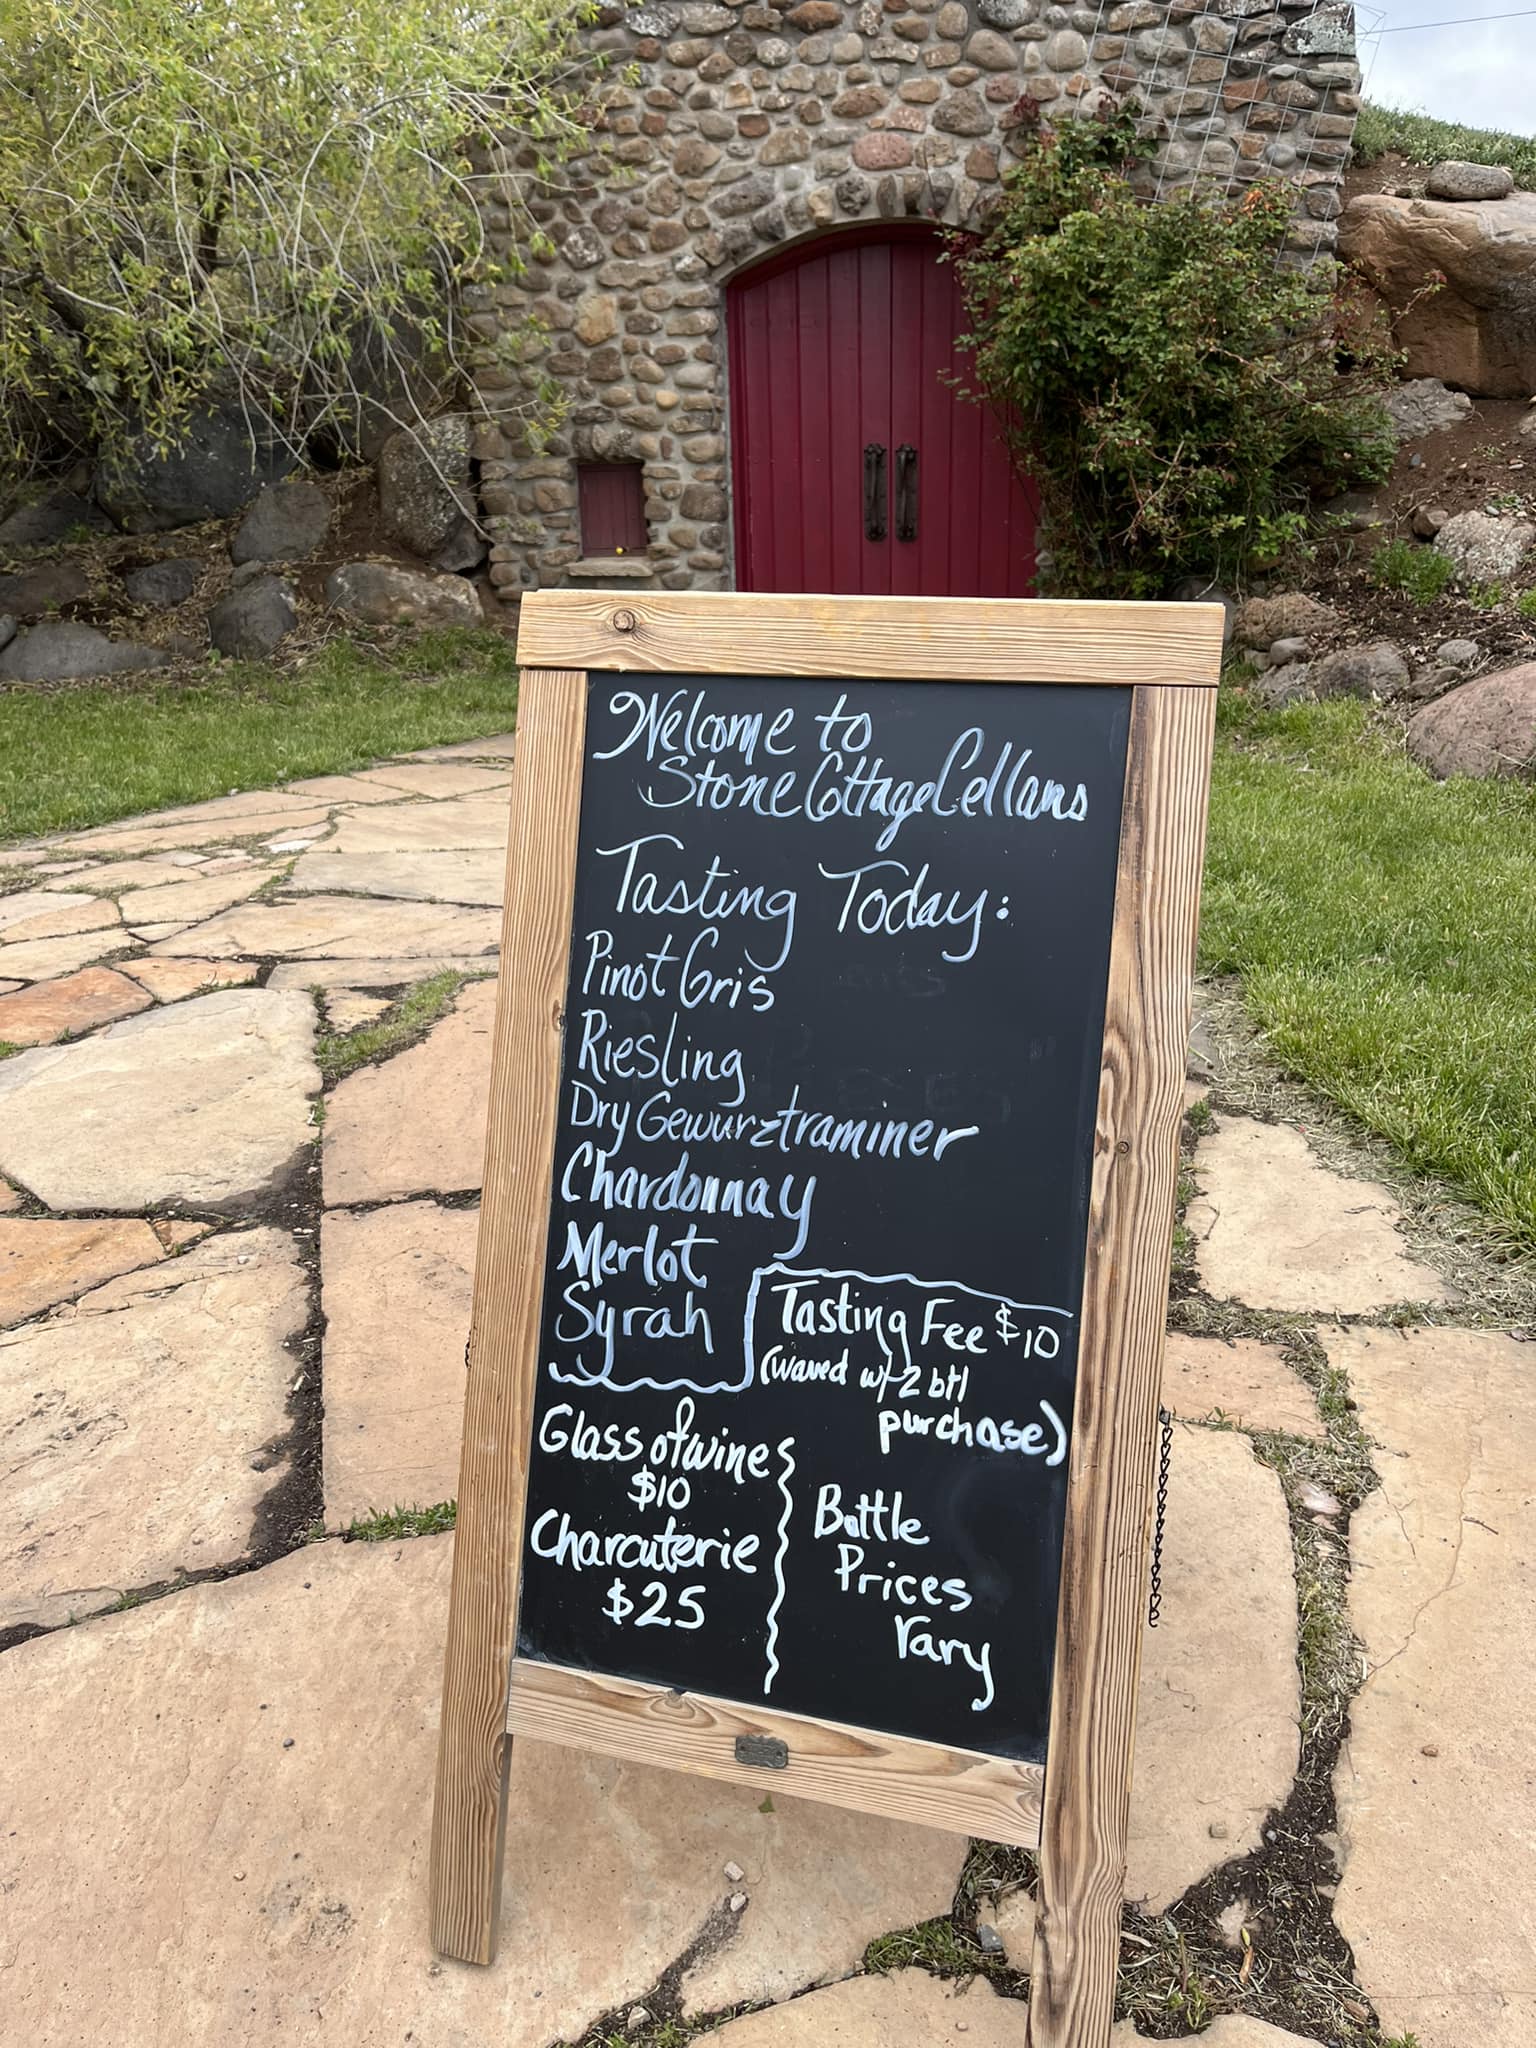 Welcome to
Stone Cottage Cellars
Tasting Today:
Pinot Gris
Riesling
Dry Gewurztraminer
Chardonnay
Merlot
Syrah
Tasting Fee $10
(waved w/ 2 btl
purchase)
Glass of wine
$10
Charcuterie
$25
Bottle
Prices
Vary